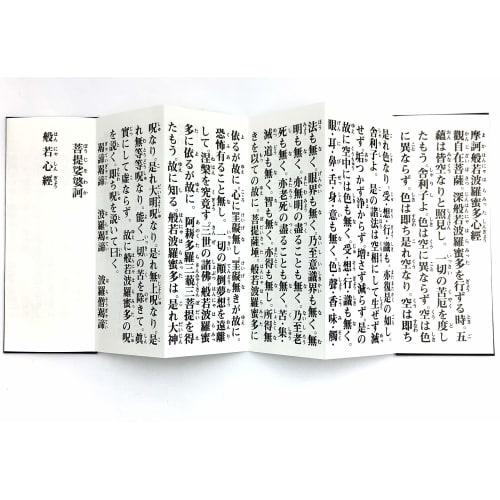 摩訶般若波羅蜜多心經
觀自在菩薩、深般若波羅蜜多を行ずる時、五
蘊は皆空なりと照見し、一切の苦厄を度し
たもう。舎利子よ、色は空に異ならず、空は色
に異ならず。色は即ち是れ空なり、空は即ち
是れ色なり。受・想・行・識も、亦復是の如し。
舎利子よ、是の諸法は空相にして生せず滅
せず、垢つかず浄からず、増さず減らず。是の
故に空中には色も無く、受・想・行・識も無く、
眼・耳・鼻・舌・身・意も無く、色・聲・香・味・觸・
法も無く、眼界も無く、乃至意識界も無く、無
明も無く、亦無明の盡ることも無く、乃至老
死も無く、亦老死の盡ることも無く、苦・集・
滅・道も無く、智も無く、亦得も無し。所得無
きを以ての故に、菩提薩埵、般若波羅蜜多に
依るが故に、心に罣礙無し。罣礙無きが故に、
恐怖有ること無し。一切の顛倒夢想を遠離
して、涅槃を究竟す。三世の諸佛、般若波羅蜜
多に依るが故に、阿耨多羅三藐三菩提を得
たもう。故に知る、般若波羅蜜多は是れ大神
呪なり、是れ大明呪なり、是れ無上呪なり、是
れ無等等呪なり。能く一切の苦を除きて、眞
實にして虚ならず。故に般若波羅蜜多の呪
を説く。即ち呪を説いて曰く、
羯諦羯諦 波羅羯諦 波羅僧羯諦
菩提娑婆訶
般若心經